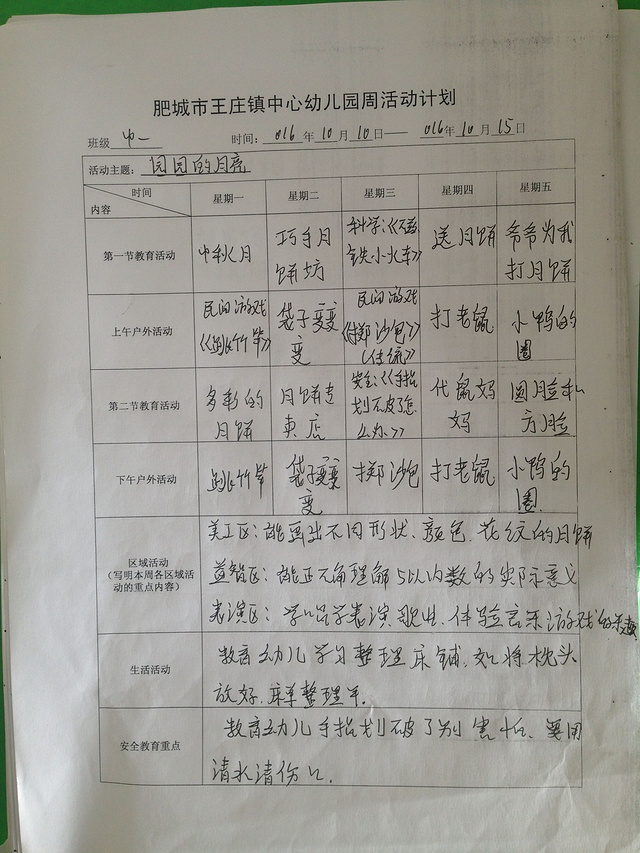 肥城市王庄镇中心幼儿园周活动计划
班级 中一 时间: 016年10月10日—— 016年10月15日
活动主题: 圆圆的月亮
时间
内容
星期一 星期二 星期三 星期四 星期五
第一节教育活动
中秋月
巧手月
饼坊
科学:《磁
铁小火车》
送月饼
爷爷为我
打月饼
上午户外活动
民间游戏
《跳竹竿》
袋子变变
变
民间游戏
《掷沙包》
(传统)
打老鼠
小鸭的
圈
第二节教育活动
多彩的
月饼
月饼专
卖店
安全:《手指
划破了怎
么办》
代鼠妈
妈
圆脸和
方脸
下午户外活动
跳竹竿
袋子变变
变
掷沙包
打老鼠
小鸭的
圈
区域活动
(写明本周各区域活
动的重点内容)
美工区:能画出不同形状、颜色、花纹的月饼
益智区:能正确理解5以内数的实际意义
表演区:学习表演歌曲,体验音乐游戏的
生活活动
教育幼儿学习整理床铺,如将枕头
放好,床单整理平.
安全教育重点
教育幼儿手指划破了别害怕、要用
清水清伤口.